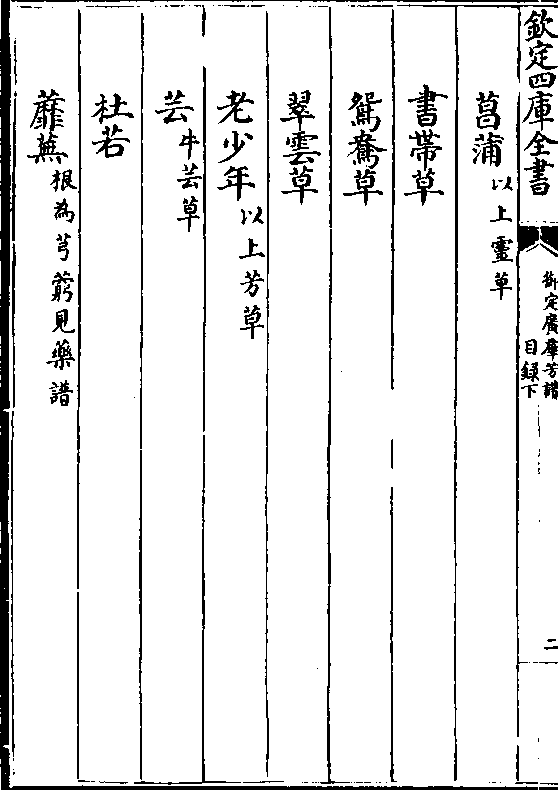 欽定四庫全書
御定廣羣芳譜
目錄下
二
菖蒲以上靈草
書帶草
鴛鴦草
翠雲草
老少年以上芳草
芸牛芸草
杜若
蘼蕪根為芎藭見藥譜